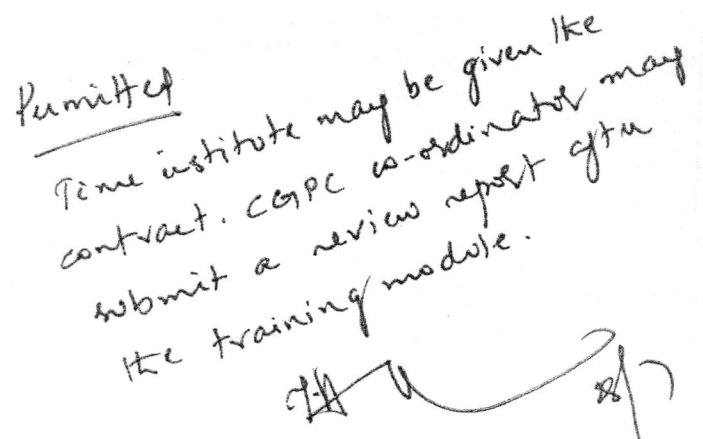 Permitted
Time institute may be given the
contract. CGPC co-ordinator may
submit a review report after
the training module.